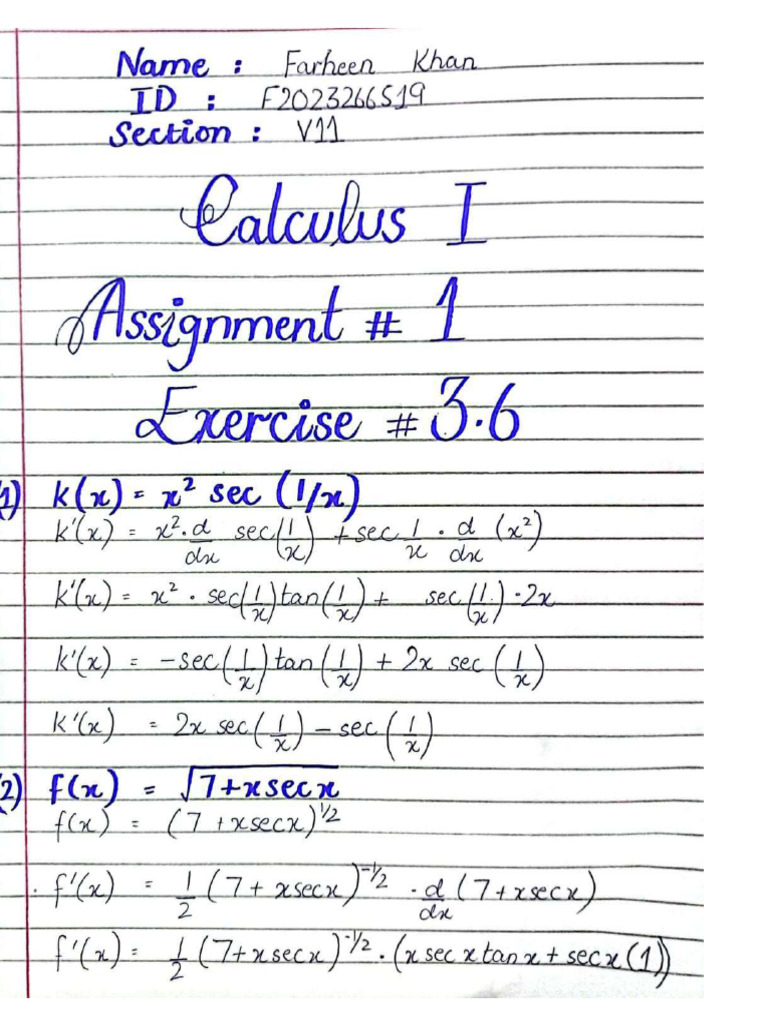 Name : Farheen Khan
ID : F2023266519
Section : V11
Calculus I
Assignment # 1
Exercise # 3.6
1) k(x) = x² sec (1/x)
k'(x) = x². d/dx sec(1/x) + sec 1/x . d/dx (x²)
k'(x) = x² . sec(1/x) tan(1/x) + sec(1/x) . 2x
k'(x) = -sec(1/x) tan(1/x) + 2x sec (1/x)
k'(x) = 2x sec(1/x) - sec(1/x)
2) f(x) = √7+xsecx
f(x) = (7+xsecx)^1/2
f'(x) = 1/2 (7+ xsecx)^-1/2 . d/dx (7+xsecx)
f'(x) = 1/2 (7+xsecx)^-1/2 . (x sec x tanx + secx (1))